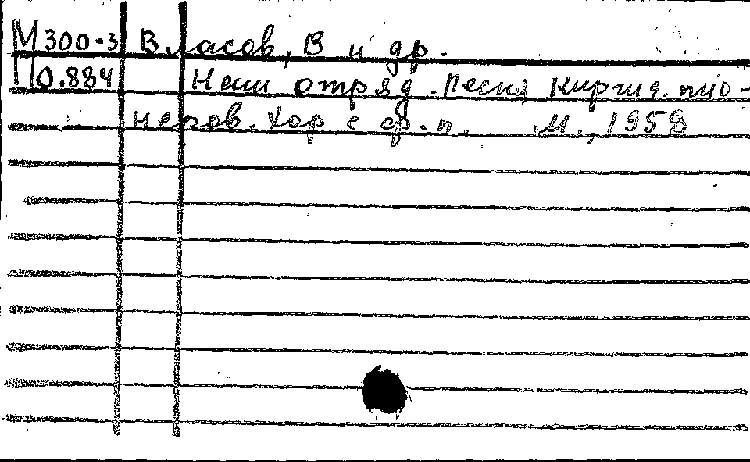 М 300.3 Власов, В и др.
П 0.884 Наш отряд. Песня киргиз. пио-
неров. Хор с ф.п. М., 1958